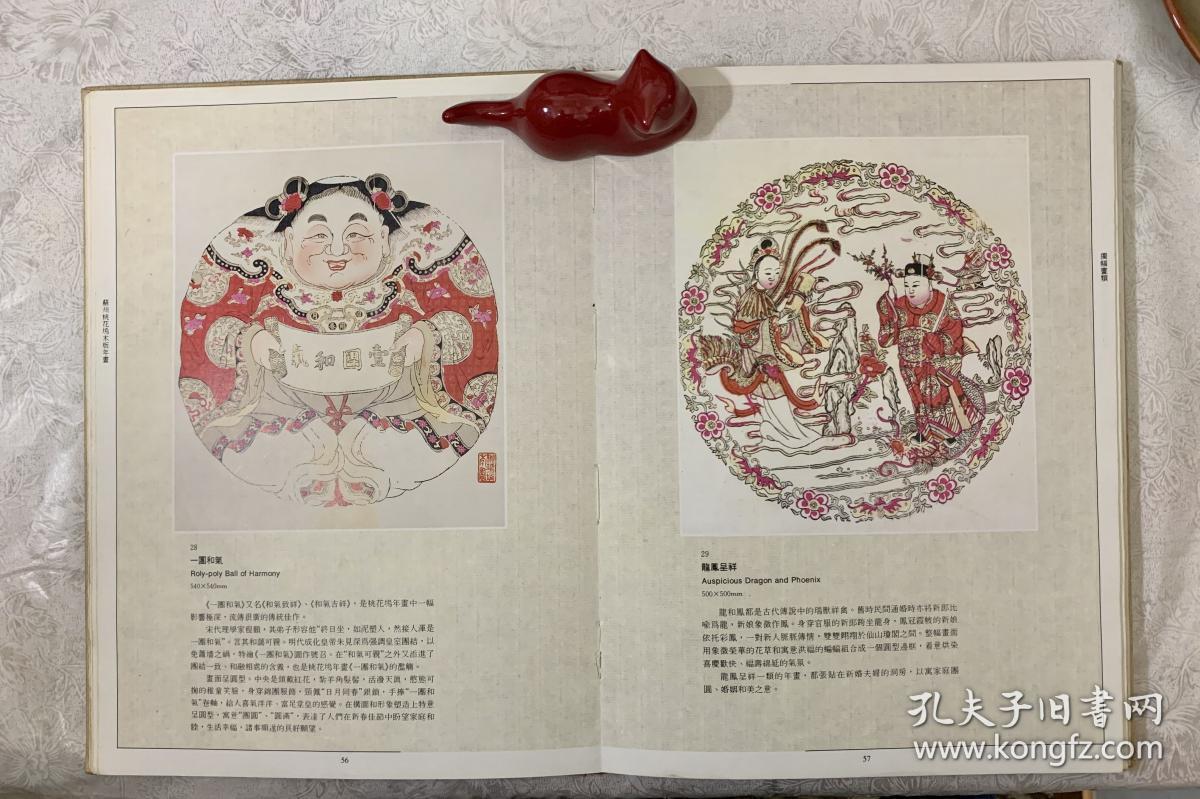 蘇州桃花塢木版年畫
氣和團壹
28
一團和氣
Roly-poly Ball of Harmony
540×540mm
《一團和氣》又名《和氣致祥》、《和氣吉祥》，是桃花塢年畫中一幅
影響極深，流傳很廣的傳統佳作。
宋代理學家程顥，其弟子形容他“終日坐，如泥塑人，然接人渾是
一團和氣”。言其和藹可親。明代成化皇帝朱見深爲強調皇室團結，以
免蕭墻之禍，特繪《一團和氣》圖作號召。在“和氣可親”之外又添進了
團結一致、和融相處的含義，也是桃花塢年畫《一團和氣》的濫觴。
畫面呈圓型。中央是頭戴紅花，紮羊角髮髻，活潑天眞，憨態可
掬的稚童笑臉，身穿錦團服飾，頸佩“日月同春”銀鎖，手捧“一團和
氣”卷軸，給人喜氣洋洋、富足堂皇的感覺。在構圖和形象塑造上特意
呈圓型，寓意“團圓”、“圓滿”，表達了人們在新春佳節中盼望家庭和
睦，生活幸福，諸事順遂的良好願望。
56
團幅畫類
29
龍鳳呈祥
Auspicious Dragon and Phoenix
500×500mm
龍和鳳都是古代傳說中的瑞獸祥禽。舊時民間通婚時亦將新郎比
喻爲龍，新娘象徵作鳳。身穿官服的新郎跨坐龍身，鳳冠霞帔的新娘
依托彩鳳，一對新人脈脈傳情，雙雙翱翔於仙山瓊閣之間。整幅畫面
用象徵榮華的花草和寓意洪福的蝙蝠組合成一個圓型邊框，着意烘染
喜慶歡快、福壽綿延的氣氛。
龍鳳呈祥一類的年畫，都張貼在新婚夫婦的洞房，以寓家庭團
圓、婚姻和美之意。
57
孔夫子旧書网
www.kongfz.com